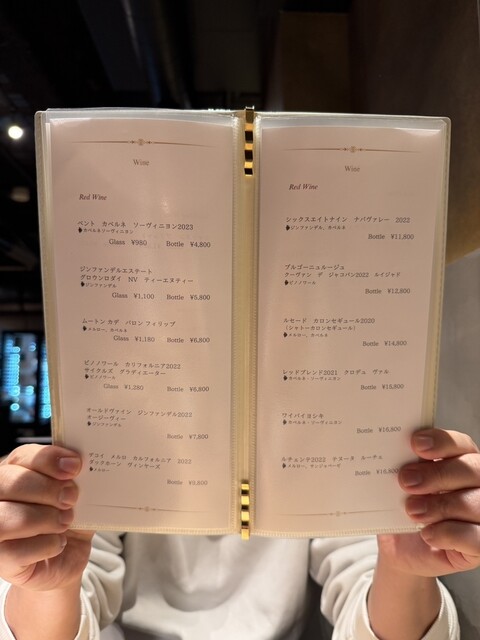 Wine
Red Wine
ベント カベルネ ソーヴィニヨン2023
カベルネソーヴィニヨン
Glass ¥980 Bottle ¥4,800
ジンファンデルエステート
グロウンロダイ NV ティーエヌティー
ジンファンデル
Glass ¥1,100 Bottle ¥5,800
ムートン カデ バロン フィリップ
メルロー、カベルネ
Glass ¥1,180 Bottle ¥6,800
ピノノワール カリフォルニア2022
サイクルズ グラディエーター
ピノノワール
Glass ¥1,280 Bottle ¥6,800
オールドヴァイン ジンファンデル2022
オージーヴィー
ジンファンデル
Bottle ¥7,800
デコイ メルロ カルフォルニア 2022
ダックホーン ヴィンヤーズ
メルロー
Bottle ¥8,800
Wine
Red Wine
シックスエイトナイン ナパヴァレー 2022
ジンファンデル、カベルネ
Bottle ¥11,800
ブルゴーニュルージュ
クーヴァン デ ジャコバン2022 ルイジャド
ピノノワール
Bottle ¥12,800
ルセード カロンセギュール2020
(シャトーカロンセギュール)
メルロー、カベルネ
Bottle ¥14,800
レッドブレンド2021 クロデュ ヴァル
カベルネ・ソーヴィニヨン
Bottle ¥15,800
ワイバイヨシキ
カベルネ・ソーヴィニヨン
Bottle ¥16,800
ルチェンテ2022 テヌータ ルーチェ
メルロー、サンジョベーゼ
Bottle ¥16,800